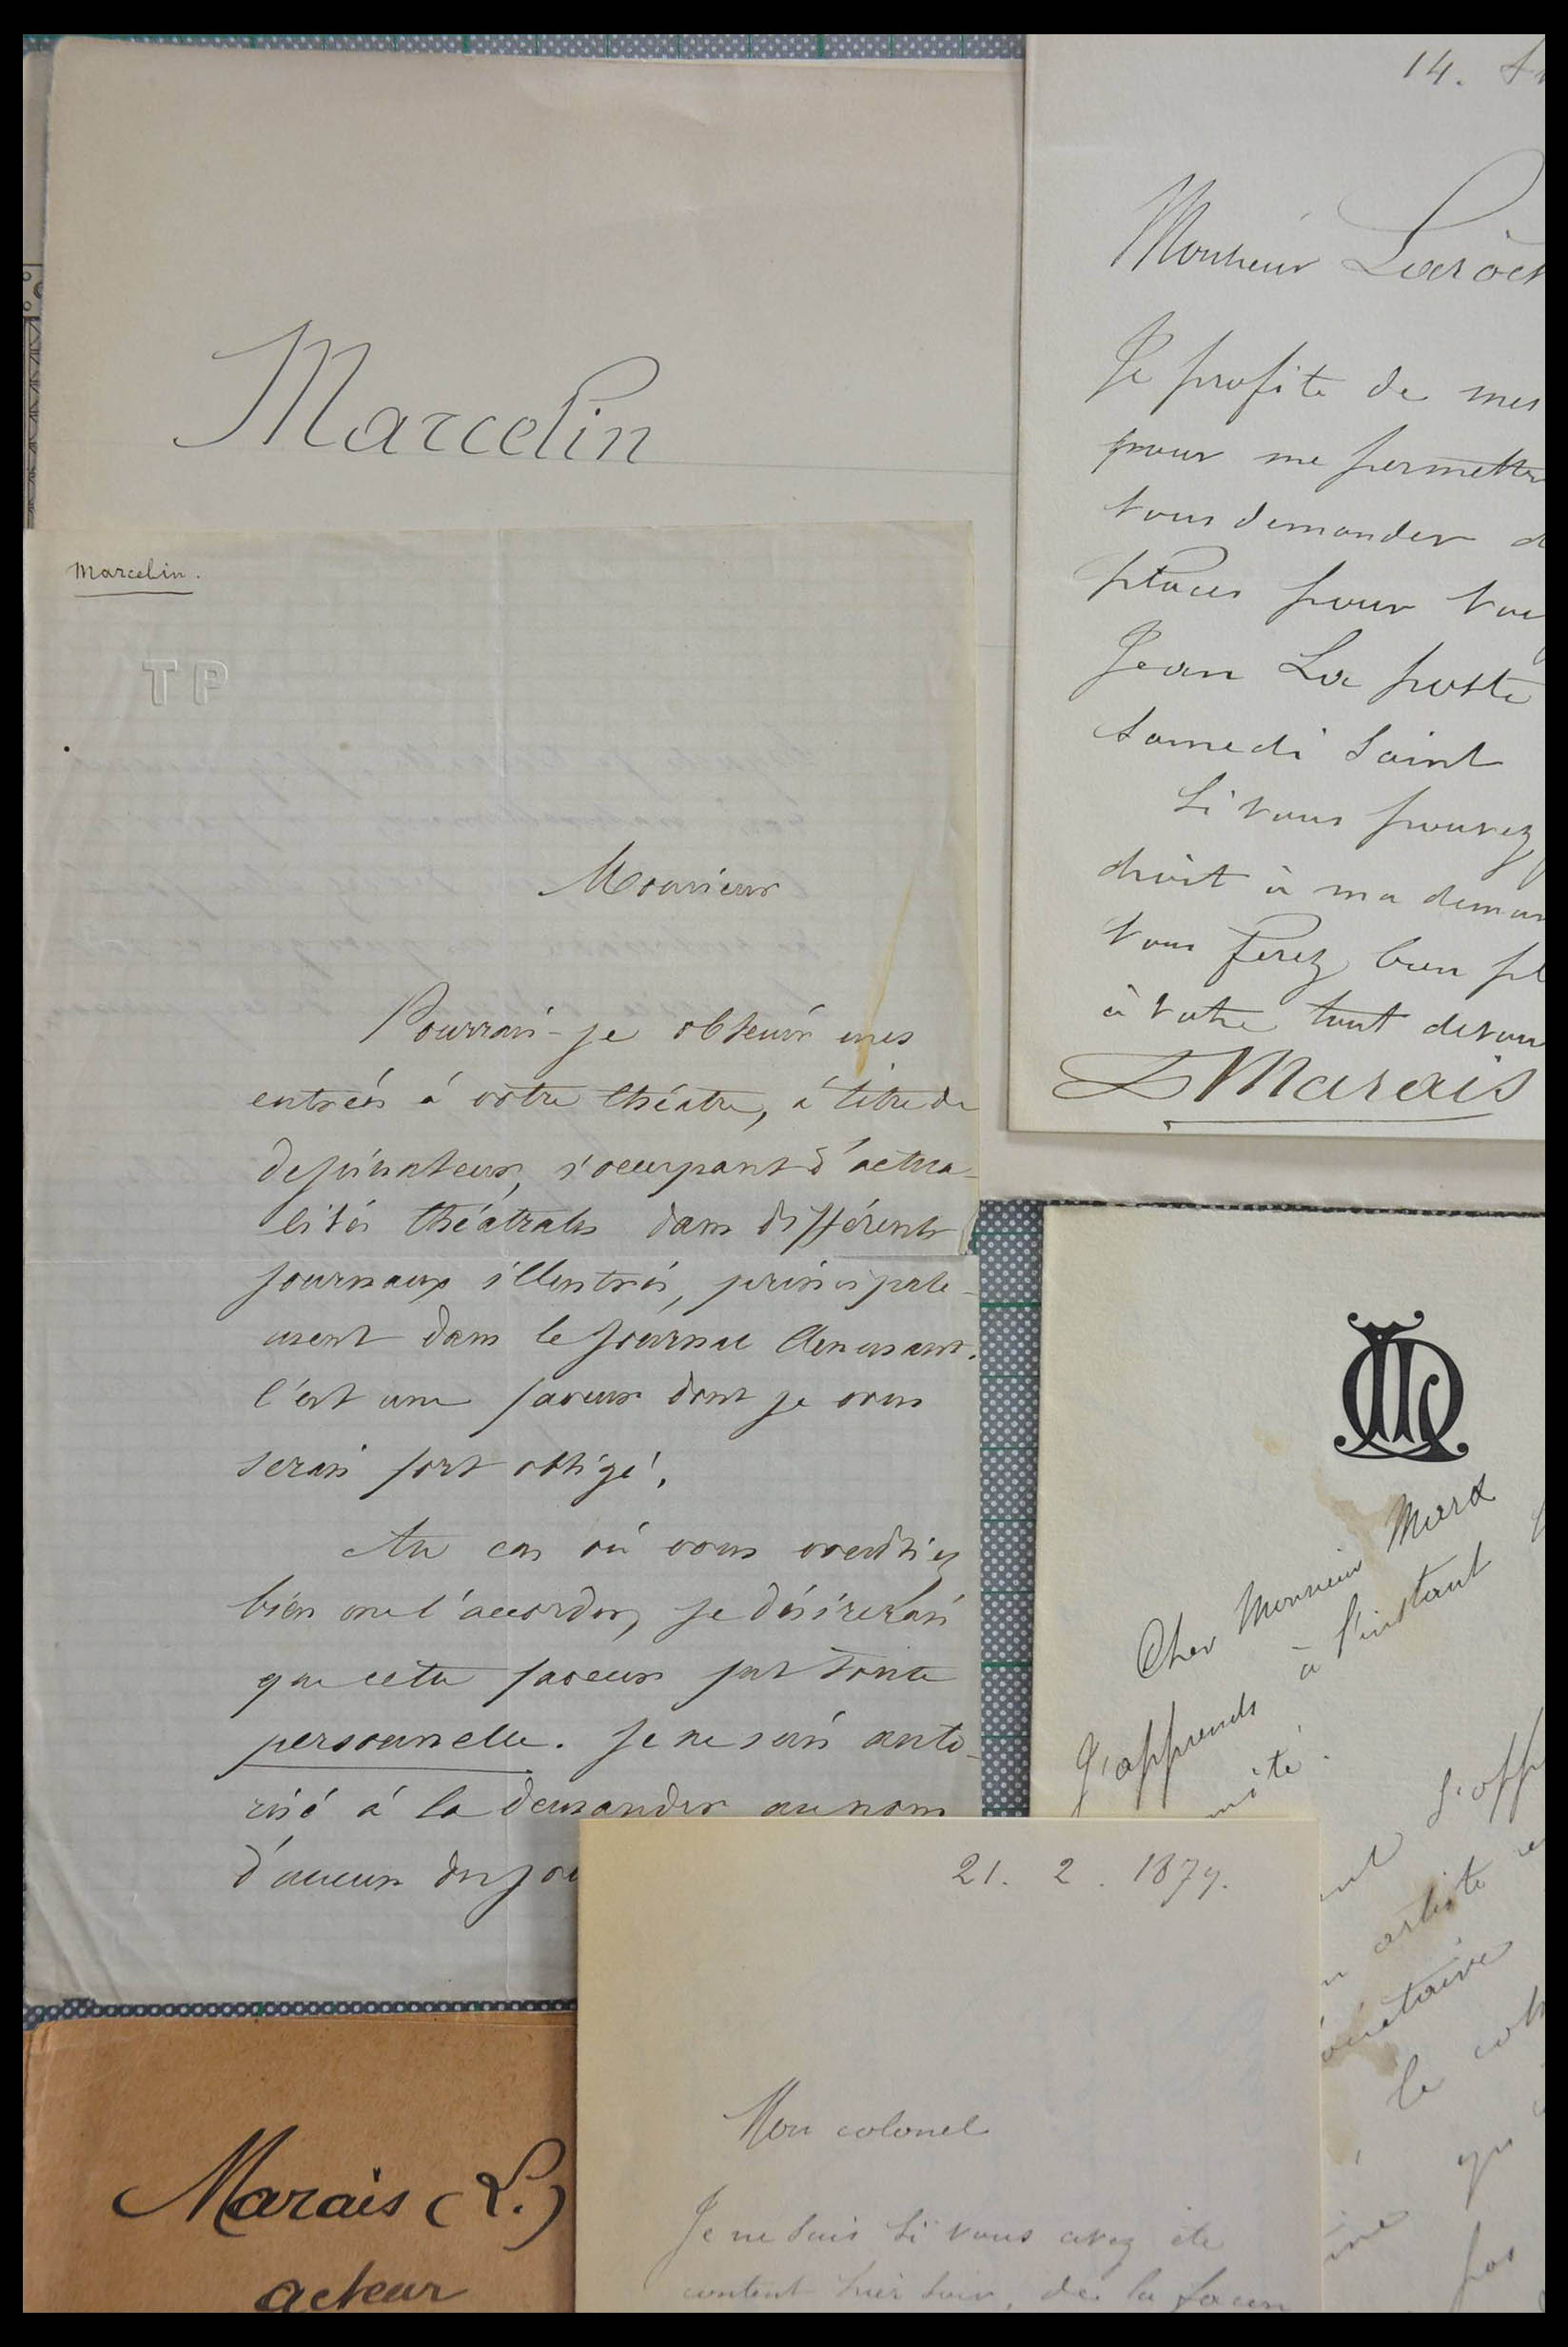 Marcelin
Marcelin.
TP
Monsieur
Pourrais-je obtenir mes
entrées à votre théâtre, à titre de
dessinateur, s'occupant d'actua-
lités théâtrales dans différents
journaux illustrés, principale-
ment dans le Journal Amusant.
C'est une faveur dont je vous
serais fort obligé.
Au cas où vous voudriez
bien me l'accorder, je désirerais
que cette faveur fut toute
personnelle. Je ne suis auto-
risé à la demander au nom
d'aucun des jou
14.
Monsieur Laroch
Je profite de mes
pour me permettre
vous demander d
places pour voi
Jean La poste
Samedi Saint
Si vous pouvez
droit à ma deman
vous ferez bien pl
à votre tout dévou
L Marais
Cher Monsieur Marx
J'apprends à l'instant
mité.
s'off
artiste
le
qu
pas
21. 2. 1879.
Mon colonel
Je ne sais si vous avez été
content hier soir, de la façon
Marais (L.)
acteur